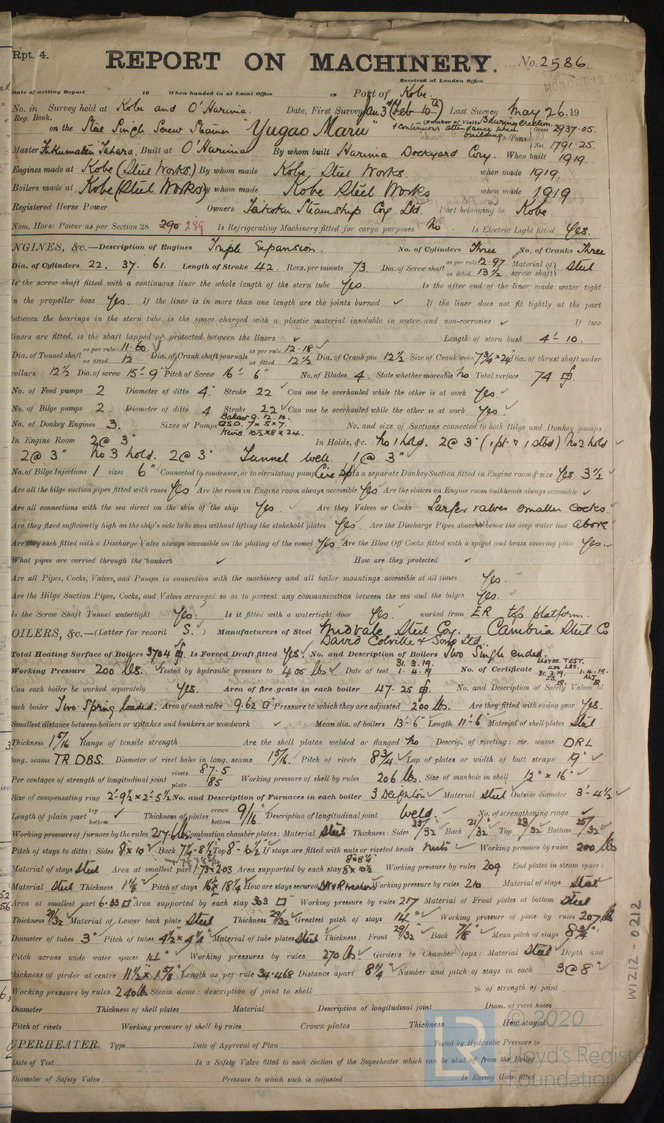 Rpt. 4.
REPORT ON MACHINERY. No. 2586
Received at London Office
Date of writing Report 19 When handed in at Local Office 19 Port of Kobe
No. in Survey held at Kobe and O'Harima Date, First Survey Jan 3rd (Feb 10th) Last Survey May 26. 19
Reg. Book. (Number of Visits
on the Steel Single Screw Steamer Yugao Maru continuous attendance when building Tons Gross 2937.05
Net 1791.25
Master Built at O'Harima By whom built Harima Dockyard Coy. When built 1919.
Engines made at Kobe (Steel Works.) By whom made Kobe Steel Works. when made 1919.
Boilers made at Kobe (Steel Works) By whom made Kobe Steel Works when made 1919
Registered Horse Power Owners Taikoku Steamship Coy. Ltd. Port belonging to Kobe
Nom. Horse Power as per Section 28 290 289 Is Refrigerating Machinery fitted for cargo purposes No Is Electric Light fitted Yes.
NGINES, &c.—Description of Engines Triple Expansion. No. of Cylinders Three No. of Cranks Three
Dia. of Cylinders 22. 37. 61. Length of Stroke 42. Revs. per minute 73 Dia. of Screw shaft as per rule 12.97 as fitted 13½ Material of screw shaft Steel
Is the screw shaft fitted with a continuous liner the whole length of the stern tube Yes. Is the after end of the liner made water tight
in the propeller boss Yes. If the liner is in more than one length are the joints burned If the liner does not fit tightly at the part
between the bearings in the stern tube, is the space charged with a plastic material insoluble in water and non-corrosive If two
liners are fitted, is the shaft lapped or protected between the liners Length of stern bush 4'-10.
Dia. of Tunnel shaft as per rule 11.60 as fitted 12 Dia. of Crank shaft journals as per rule 12.18 as fitted 12½ Dia. of Crank pin 12½ Size of Crank webs 7¾ x 24 Dia. of thrust shaft under
collars 12½ Dia. of screw 15'-9" Pitch of Screw 16'-6" No. of Blades 4. State whether moveable No Total surface 74
No. of Feed pumps 2 Diameter of ditto 4" Stroke 22 Can one be overhauled while the other is at work Yes.
No. of Bilge pumps 2 Diameter of ditto 4 Stroke 22 Can one be overhauled while the other is at work Yes.
No. of Donkey Engines 3. Sizes of Pumps No. and size of Suctions connected to both Bilge and Donkey pumps
In Engine Room 2 @ 3" In Holds, &c. No 1 hold. 2 @ 3" (1 pt & 1 stbd) No 2 hold
2 @ 3" No 3 hold. 2 @ 3" Tunnel well. 1 @ 3"
No. of Bilge Injections 1 sizes 6" Connected to condenser, or to circulating pump Is a separate Donkey Suction fitted in Engine room & size Yes 3½
Are all the bilge suction pipes fitted with roses Yes Are the roses in Engine room always accessible Yes Are the sluices on Engine room bulkheads always accessible
Are all connections with the sea direct on the skin of the ship Yes. Are they Valves or Cocks Larger valves smaller cocks
Are they fixed sufficiently high on the ship's side to be seen without lifting the stokehold plates Yes. Are the Discharge Pipes above or below the deep water line above
Are they each fitted with a Discharge Valve always accessible on the plating of the vessel Yes. Are the Blow Off Cocks fitted with a spigot and brass covering plate Yes.
What pipes are carried through the bunkers How are they protected
Are all Pipes, Cocks, Valves, and Pumps in connection with the machinery and all boiler mountings accessible at all times Yes.
Are the Bilge Suction Pipes, Cocks, and Valves arranged so as to prevent any communication between the sea and the bilges Yes.
Is the Screw Shaft Tunnel watertight Yes. Is it fitted with a watertight door Yes. worked from ER top platform.
OILERS, &c.—(Letter for record S. ) Manufacturers of Steel Midvale Steel Coy. Cambria Steel Co
David Colville & Sons Ltd.
Total Heating Surface of Boilers 3704 Is Forced Draft fitted Yes. No. and Description of Boilers Two Single ended.
Working Pressure 200 lbs. Tested by hydraulic pressure to 400 lbs Date of test 31.3.19. 1.4.19 No. of Certificate
Can each boiler be worked separately Yes. Area of fire grate in each boiler 47.25 No. and Description of Safety Valves to
each boiler Two Spring loaded. Area of each valve 9.62 Pressure to which they are adjusted 200 lbs. Are they fitted with easing gear Yes.
Smallest distance between boilers or uptakes and bunkers or woodwork Mean dia. of boilers 13'-6" Length 11'-6" Material of shell plates Steel
Thickness 1 5/16 Range of tensile strength Are the shell plates welded or flanged No Descrip. of riveting: cir. seams DRL
long. seams TR DBS. Diameter of rivet holes in long. seams 1 5/16 Pitch of rivets 8¾ Lap of plates or width of butt straps 19"
Per centages of strength of longitudinal joint rivets 87.5 plate 85 Working pressure of shell by rules 206 lbs. Size of manhole in shell 12" x 16"
Size of compensating ring 2'-9½ x 2'-5½ No. and Description of Furnaces in each boiler 3 Deighton Material Steel Outside diameter 3'-4½
Length of plain part top bottom Thickness of plates crown bottom 9/16 Description of longitudinal joint Weld. No. of strengthening rings
Working pressure of furnace by the rules 217 lbs Combustion chamber plates: Material Steel Thickness: Sides Back 21/32 Top 23/32 Bottom 25/32
Pitch of stays to ditto: Sides 8 x 10 Back Top If stays are fitted with nuts or riveted heads Nuts Working pressure by rules 200 lbs
Material of stays Steel Area at smallest part Area supported by each stay Working pressure by rules 209 End plates in steam space:
Material Steel Thickness 1⅛ Pitch of stays How are stays secured Working pressure by rules 210 Material of stays Steel
Area at smallest part 6.33 Area supported by each stay 303 Working pressure by rules 217 Material of Front plates at bottom Steel
Thickness 29/32 Material of Lower back plate Steel Thickness 29/32 Greatest pitch of stays 14" Working pressure of plate by rules 207 lbs
Diameter of tubes 3" Pitch of tubes Material of tube plates Steel Thickness: Front 29/32 Back 7/8 Mean pitch of stays 8¾
Pitch across wide water spaces 14" Working pressures by rules 270 lbs Girders to Chamber tops: Material Steel Depth and
thickness of girder at centre Length as per rule 34.468 Distance apart 8¼ Number and pitch of stays in each 3 @ 8"
Working pressure by rules 240 lbs Steam dome: description of joint to shell % of strength of joint
Diameter Thickness of shell plates Material Description of longitudinal joint Diam. of rivet holes
Pitch of rivets Working pressure of shell by rules Crown plates Thickness How stayed
UPERHEATER. Type Date of Approval of Plan Tested by Hydraulic Pressure to
Date of Test Is a Safety Valve fitted to each Section of the Superheater which can be shut off from the Boiler
Diameter of Safety Valve Pressure to which each is adjusted Is Easing Gear fitted
W1212-0212
© 2020
LR
Lloyd's Register
Foundation